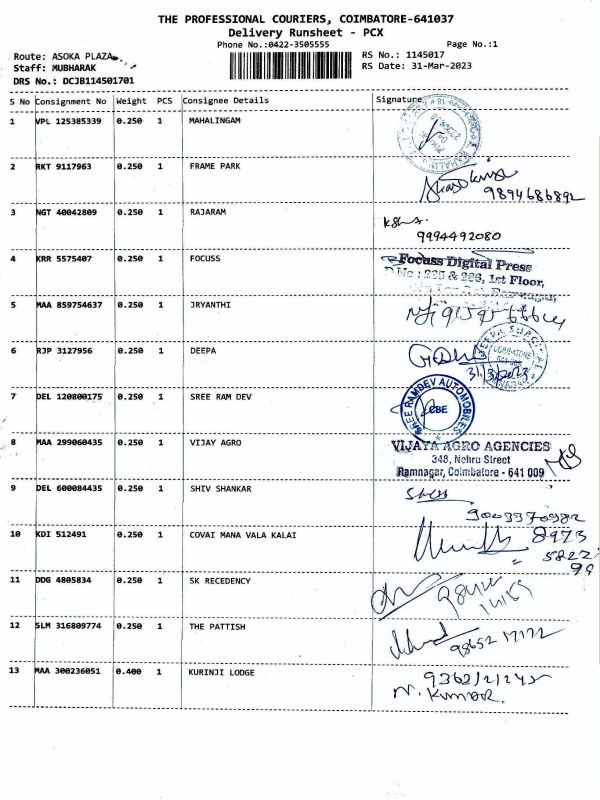 THE PROFESSIONAL COURIERS, COIMBATORE-641037
Delivery Runsheet - PCX
Phone No.:0422-3505555 Page No.:1
Route: ASOKA PLAZA RS No.: 1145017
Staff: MUBHARAK RS Date: 31-Mar-2023
DRS No.: DCJB114501701
S No Consignment No Weight PCS Consignee Details Signature
1 VPL 125385339 0.250 1 MAHALINGAM
2 RKT 9117963 0.250 1 FRAME PARK
9894686892
3 NGT 40042809 0.250 1 RAJARAM
9994492080
4 KRR 5575407 0.250 1 FOCUSS
Focuss Digital Press
& 286, 1st Floor,
5 MAA 859754637 0.250 1 JRYANTHI
6 RJP 3127956 0.250 1 DEEPA
31/3/2023
7 DEL 120800175 0.250 1 SREE RAM DEV
SREE RAMDEV AUTOMOBILES
CBE
8 MAA 299060435 0.250 1 VIJAY AGRO
VIJAYA AGRO AGENCIES
348, Nehru Street
Ramnagar, Coimbatore - 641 009
9 DEL 600084435 0.250 1 SHIV SHANKAR
10 KDI 512491 0.250 1 COVAI MANA VALA KALAI
8973
5822
99
11 DDG 4805834 0.250 1 SK RECEDENCY
12 SLM 316809774 0.250 1 THE PATTISH
13 MAA 300236051 0.400 1 KURINJI LODGE
N. KUMAR.